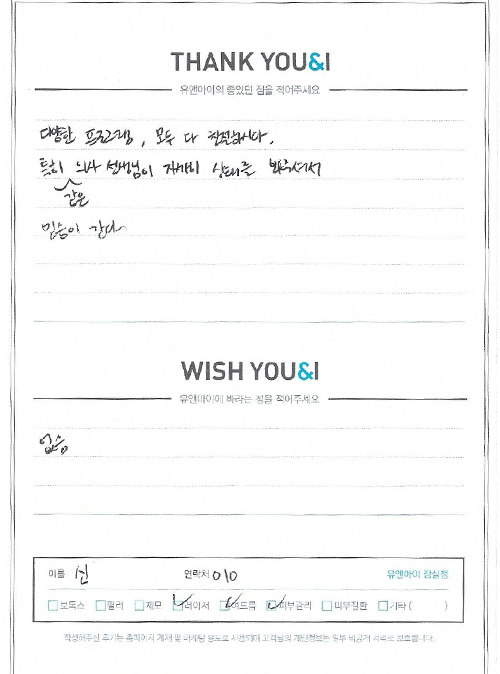 THANK YOU&I
유앤아이의 좋았던 점을 적어주세요
다양한 프로그램, 모두 다 친절합니다.
특히 같은 의사 선생님이 자세히 상태를 봐주셔서
믿음이 간다
WISH YOU&I
유앤아이에 바라는 점을 적어주세요
없음
이름 신 연락처 010 유앤아이 잠실점
보톡스 필러 제모 레이저 여드름 피부관리 피부질환 기타 ( )
작성해주신 후기는 홈페이지 게재 및 마케팅 용도로 사용되며 고객님의 개인정보는 일부 비공개 처리로 보호합니다.